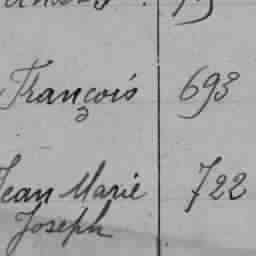 François 693
Jean Marie 722
Joseph